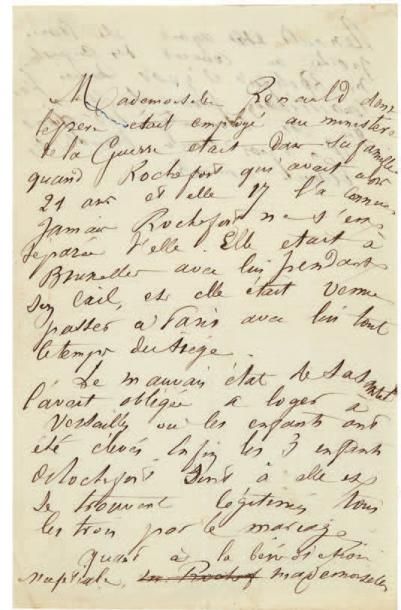 Mademoiselle Renauld dont
le père était employé au ministère
de la Guerre était dans sa famille
quand Rochefort qui avait alors
21 ans et elle 17 l'a connue
Jamais Rochefort ne s'est
séparé d'elle. Elle était à
Bruxelles avec lui pendant
son exil, et elle était venue
passer à Paris avec lui tout
le temps du siège.
Le mauvais état de sa santé
l'avait obligée à loger à
Versailles où les enfants ont
été élevés enfin les 3 enfants
de Rochefort sont à elle et
se trouvent légitimés tous
les trois par le mariage
quant à la bénédiction
nuptiale mademoiselle